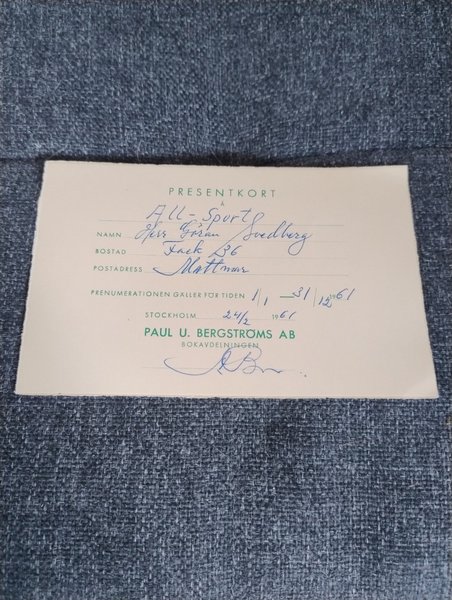 PRESENTKORT
Å
All-Sport
NAMN Herr Göran Svedberg
BOSTAD Fack 36
POSTADRESS Mattmar
PRENUMERATIONEN GÄLLER FÖR TIDEN 1/1 – 31/12 1961
STOCKHOLM 24/2 1961
PAUL U. BERGSTRÖMS AB
BOKAVDELNINGEN